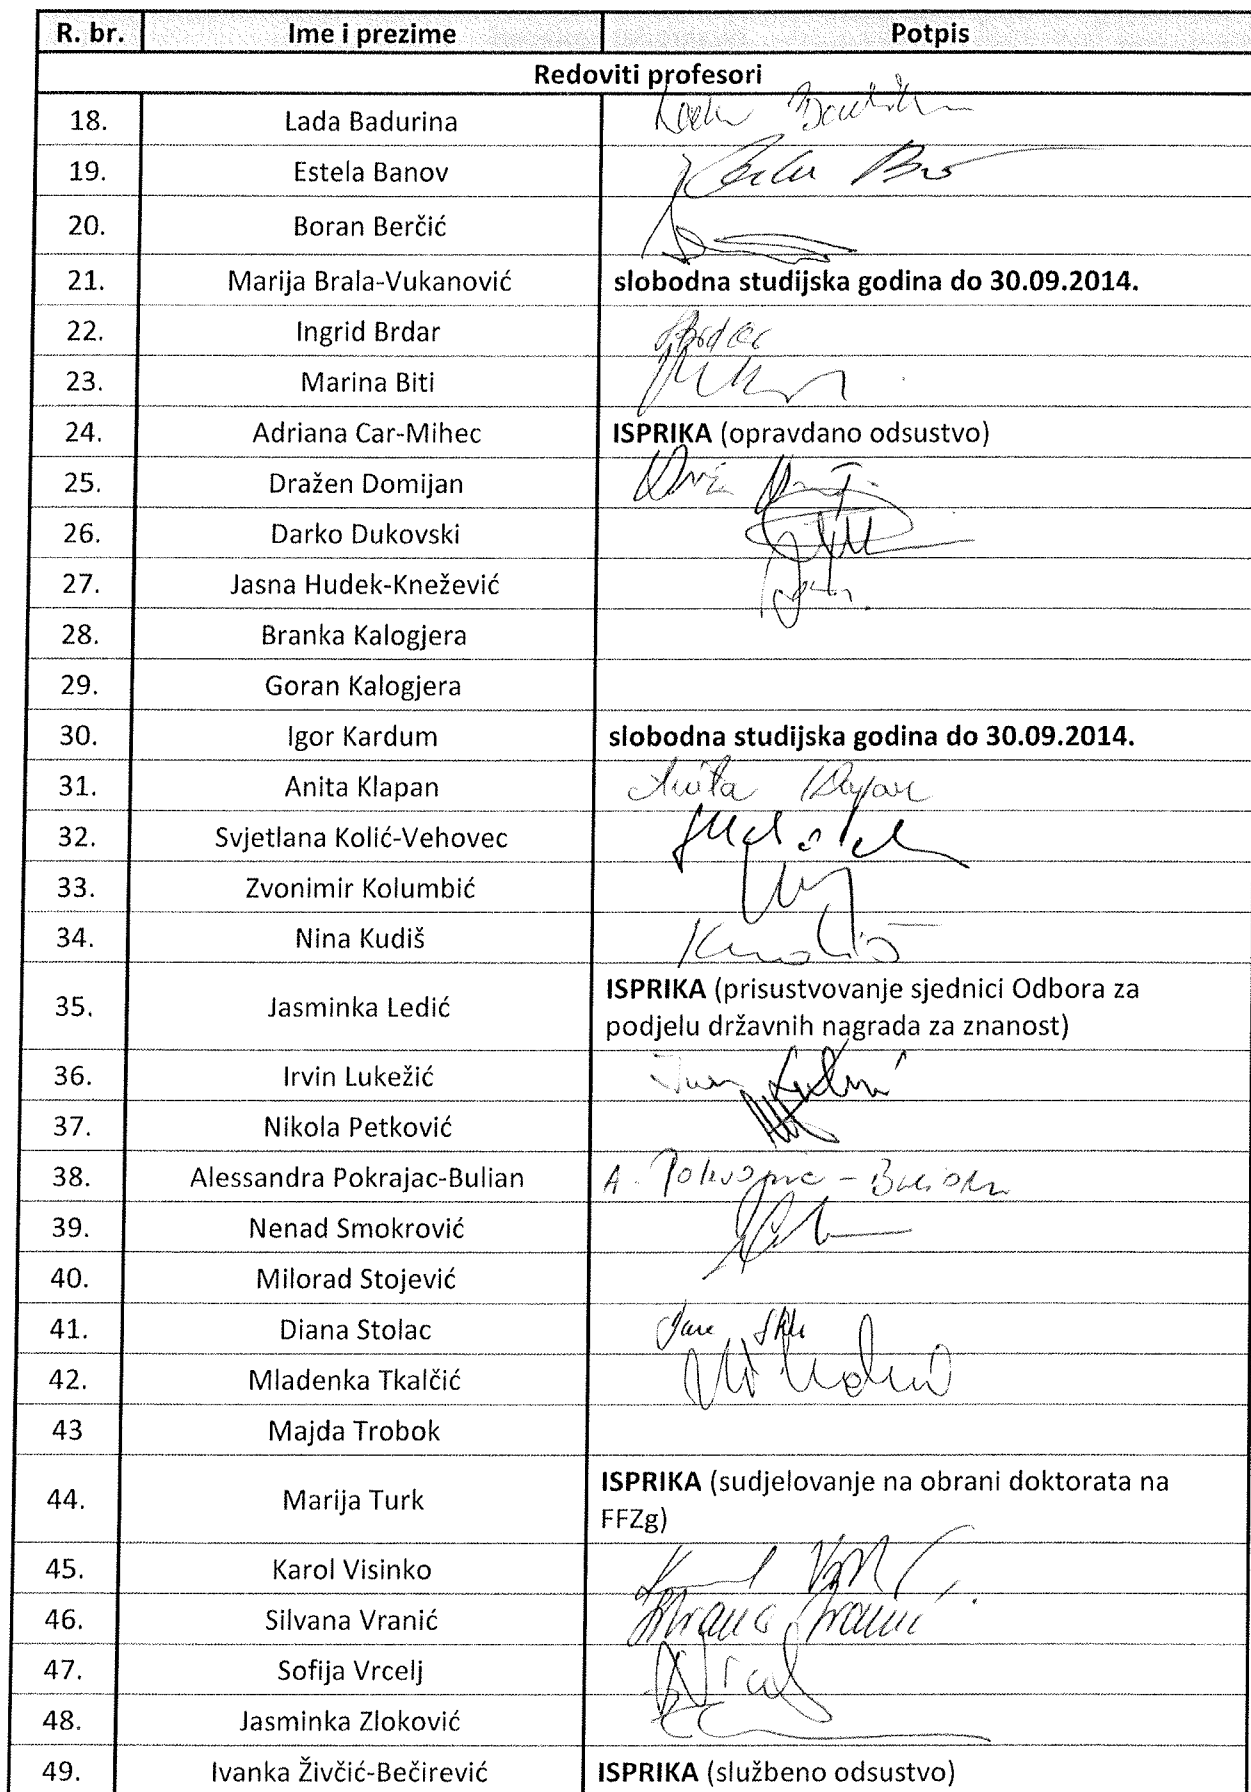 R. br. Ime i prezime Potpis
Redoviti profesori
18. Lada Badurina
19. Estela Banov
20. Boran Berčić
21. Marija Brala-Vukanović slobodna studijska godina do 30.09.2014.
22. Ingrid Brdar Brdar
23. Marina Biti
24. Adriana Car-Mihec ISPRIKA (opravdano odsustvo)
25. Dražen Domijan
26. Darko Dukovski
27. Jasna Hudek-Knežević
28. Branka Kalogjera
29. Goran Kalogjera
30. Igor Kardum slobodna studijska godina do 30.09.2014.
31. Anita Klapan Anita Klapan
32. Svjetlana Kolić-Vehovec
33. Zvonimir Kolumbić
34. Nina Kudiš Kudiš
35. Jasminka Ledić ISPRIKA (prisustvovanje sjednici Odbora za
podjelu državnih nagrada za znanost)
36. Irvin Lukežić
37. Nikola Petković
38. Alessandra Pokrajac-Bulian A. Pokrajac-Bulian
39. Nenad Smokrović
40. Milorad Stojević
41. Diana Stolac
42. Mladenka Tkalčić
43 Majda Trobok
44. Marija Turk ISPRIKA (sudjelovanje na obrani doktorata na
FFZg)
45. Karol Visinko
46. Silvana Vranić Silvana Vranić
47. Sofija Vrcelj
48. Jasminka Zloković
49. Ivanka Živčić-Bečirević ISPRIKA (službeno odsustvo)